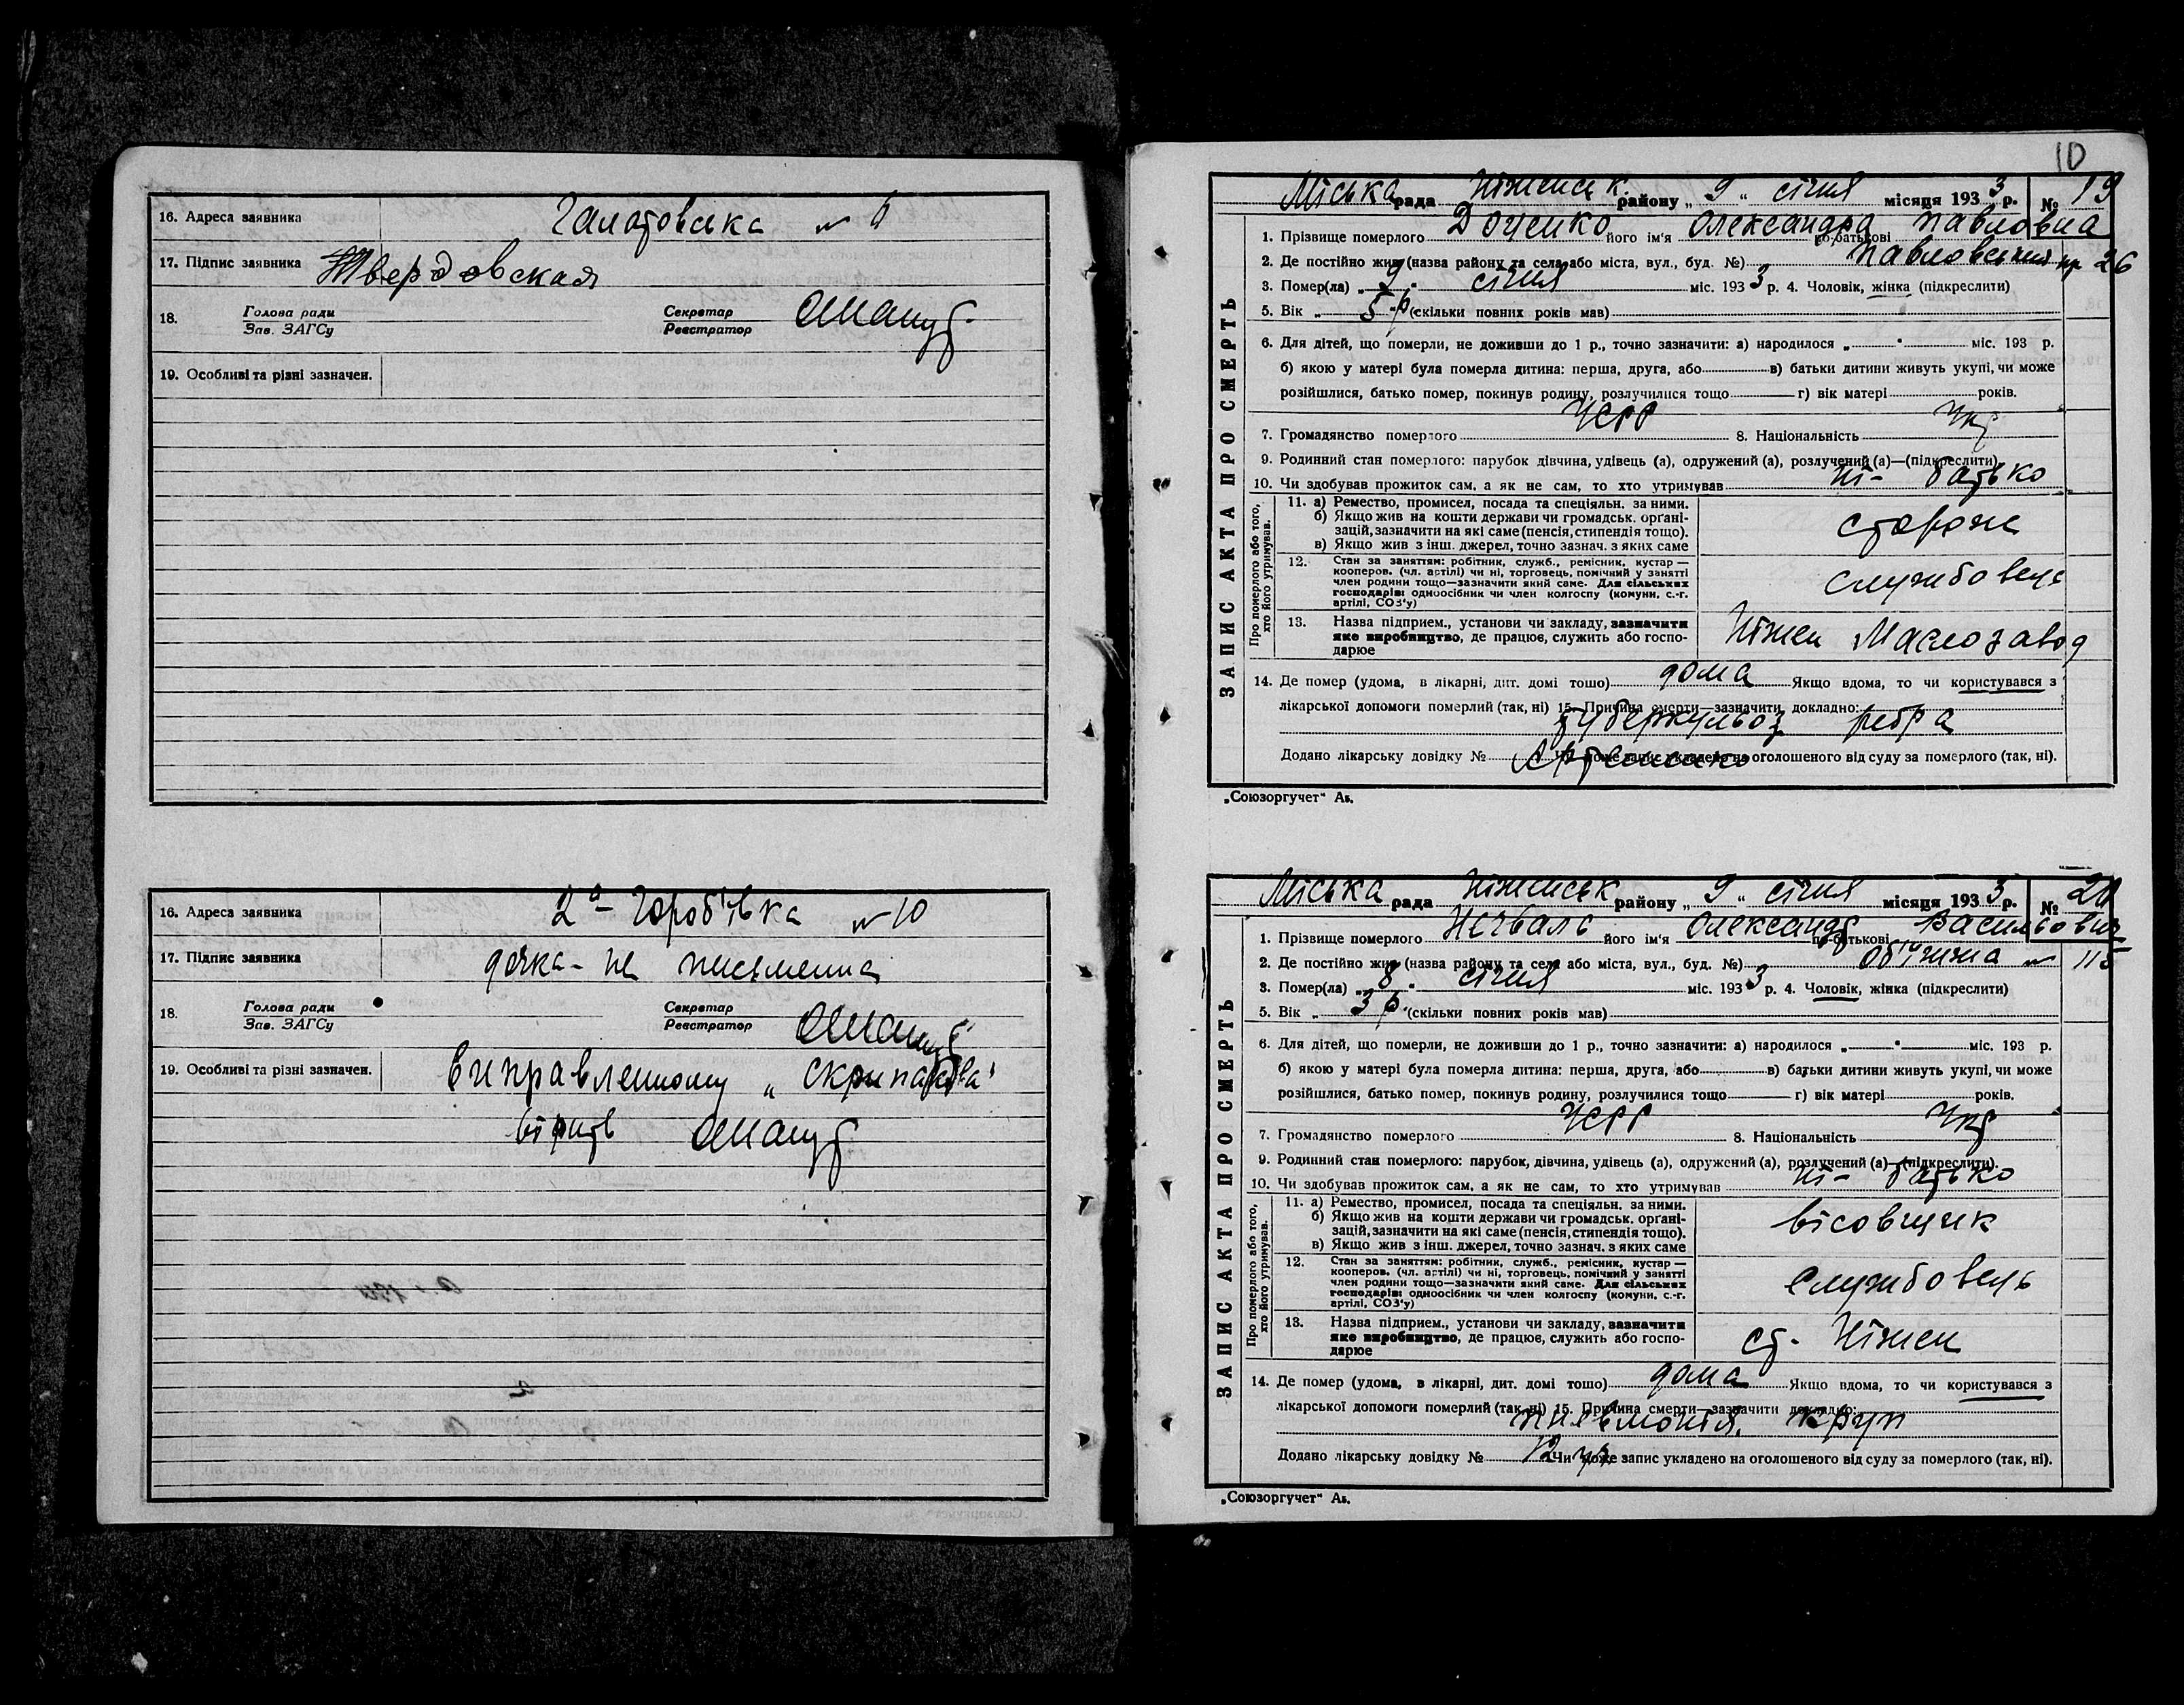 16. Адреса заявника Галатовська № 6
17. Підпис заявника Твердовская
18. Голова ради Зав. ЗАГСу Секретар Реєстратор
19. Особливі та різні зазначен.
16. Адреса заявника 2а - Горобівка № 10
17. Підпис заявника дочка - не письменна
18. Голова ради Зав. ЗАГСу Секретар Реєстратор
19. Особливі та різні зазначен. виправленному „
вірить
10
Міська рада Ніженськ. району „ 9 “ січня місяця 1933 р. № 19
ЗАПИС АКТА ПРО СМЕРТЬ
1. Прізвище померлого Доценко його ім'я Олександра по-батькові Павловна
2. Де постійно жив (назва району та села або міста, вул., буд. №) 26
3. Помер(ла) „ 9 “ січня міс. 1933 р. 4. Чоловік, жінка (підкреслити)
5. Вік „ 5 р “ (скільки повних років мав)
6. Для дітей, що померли, не доживши до 1 р., точно зазначити: а) народилося „ “ міс. 193 р.
б) якою у матері була померла дитина: перша, друга, або в) батьки дитини живуть укупі, чи може
розійшлися, батько помер, покинув родину, розлучилися тощо г) вік матері років.
7. Громадянство померлого УСРР 8. Національність Укр
9. Родинний стан померлого: парубок, дівчина, удівець (а), одружений (а), розлучений (а)—(підкреслити).
10. Чи здобував прожиток сам, а як не сам, то хто утримував ні - батько
Про померлого або того, хто його утримував.
11. а) Ремество, промисел, посада та спеціяльн. за ними.
б) Якщо жив на кошти держави чи громадськ. органі-
зацій, зазначити на які саме (пенсія, стипендія тощо).
в) Якщо жив з інш. джерел, точно зазнач. з яких саме
сторож
12. Стан за заняттям: робітник, служб., ремісник, кустар —
кооперов. (чл. артілі) чи ні, торговець, помічний у занятті
член родини тощо—зазначити який саме. Для сільських
господарів: одноосібник чи член колгоспу (комуни, с.-г.
артілі, СОЗ'у)
службовець
13. Назва підприєм., установи чи закладу, зазначити
яке виробництво, де працює, служить або госпо-
дарює
Ніжен Маслозавод
14. Де помер (удома, в лікарні, дит. домі тощо) дома Якщо вдома, то чи користувався з
лікарської допомоги померлий (так, ні) 15. Причина смерти—зазначити докладно:
туберкульоз ребра
Додано лікарську довідку № Чи може запис укладено на оголошеного від суду за померлого (так, ні).
„Союзоргучет“ Аз.
Міська рада Ніженськ району „ 9 “ січня місяця 1933 р. № 20
ЗАПИС АКТА ПРО СМЕРТЬ
1. Прізвище померлого його ім'я Олександр по-батькові Васильович
2. Де постійно жив (назва району та села або міста, вул., буд. №) Об'їжжа №
3. Помер(ла) „ 8 “ січня міс. 1933 р. 4. Чоловік, жінка (підкреслити)
5. Вік „ 3 р. “ (скільки повних років мав)
6. Для дітей, що померли, не доживши до 1 р., точно зазначити: а) народилося „ “ міс. 193 р.
б) якою у матері була померла дитина: перша, друга, або в) батьки дитини живуть укупі, чи може
розійшлися, батько помер, покинув родину, розлучилися тощо г) вік матері років.
7. Громадянство померлого УСРР 8. Національність Укр
9. Родинний стан померлого: парубок, дівчина, удівець (а), одружений (а), розлучений (а)—(підкреслити).
10. Чи здобував прожиток сам, а як не сам, то хто утримував ні - батько
Про померлого або того, хто його утримував.
11. а) Ремество, промисел, посада та спеціяльн. за ними.
б) Якщо жив на кошти держави чи громадськ. органі-
зацій, зазначити на які саме (пенсія, стипендія тощо).
в) Якщо жив з інш. джерел, точно зазнач. з яких саме
вісовщик
12. Стан за заняттям: робітник, служб., ремісник, кустар —
кооперов. (чл. артілі) чи ні, торговець, помічний у занятті
член родини тощо—зазначити який саме. Для сільських
господарів: одноосібник чи член колгоспу (комуни, с.-г.
артілі, СОЗ'у)
службовець
13. Назва підприєм., установи чи закладу, зазначити
яке виробництво, де працює, служить або госпо-
дарює
ст. Ніжен
14. Де помер (удома, в лікарні, дит. домі тощо) дома Якщо вдома, то чи користувався з
лікарської допомоги померлий (так, ні) 15. Причина смерти—зазначити докладно:
пневмонія, круп
Додано лікарську довідку № 12 Чи може запис укладено на оголошеного від суду за померлого (так, ні).
„Союзоргучет“ Аз.